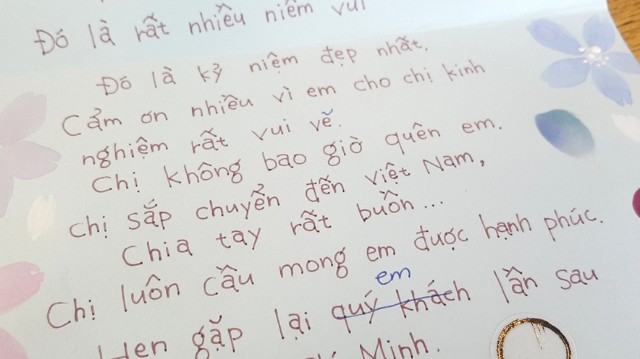 Đó là rất nhiều niềm vui
Đó là kỷ niệm đẹp nhất.
Cảm ơn nhiều vì em cho chị kinh
nghiệm rất vui vẽ.
Chị không bao giờ quên em.
chị sắp chuyển đến việt Nam,
Chia tay rất buồn...
Chị luôn cầu mong em được hạnh phúc.
em
Hẹn gặp lại quý khách lần sau
Minh.